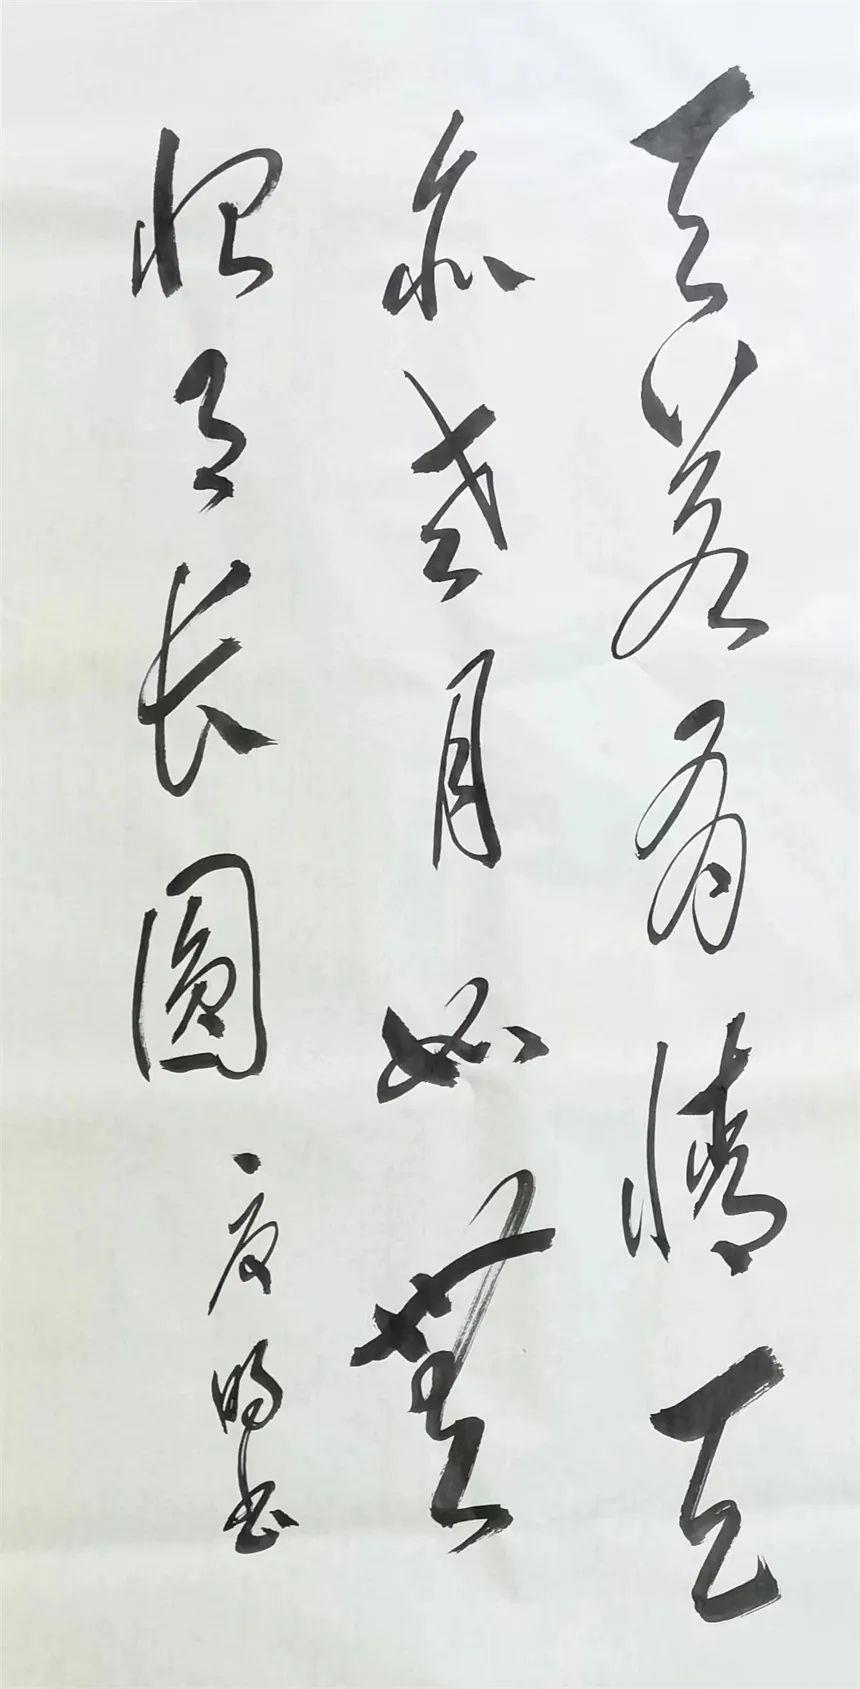 天若有情天
亦老月如無
恨月长圆
明书